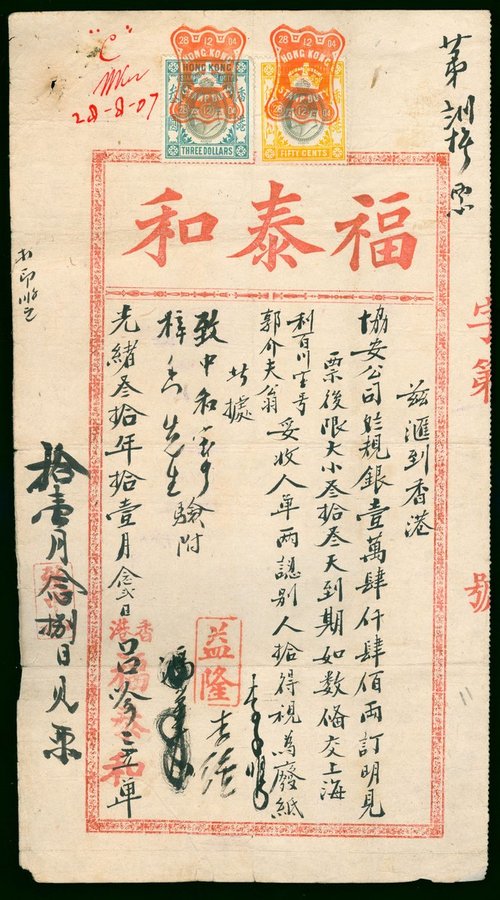 "C"
28-8-07
28 12 04
HONG KONG
STAMP DUTY
THREE DOLLARS
28 12 04
HONG KONG
STAMP DUTY
FIFTY CENTS
福泰和
茲滙到香港
協安公司
規銀壹萬肆仟肆佰両訂明見
票後限大小叁拾叁天到期如數俻交上海
利百川寳号
郭介夫翁
妥收人單両認別人拾得視為廢紙
此據
致中和寳号
梓
先生驗附
光緒叁拾年拾壹月念弍日
單
香港
福泰和
益隆
拾壹月念捌日見票
字第
號